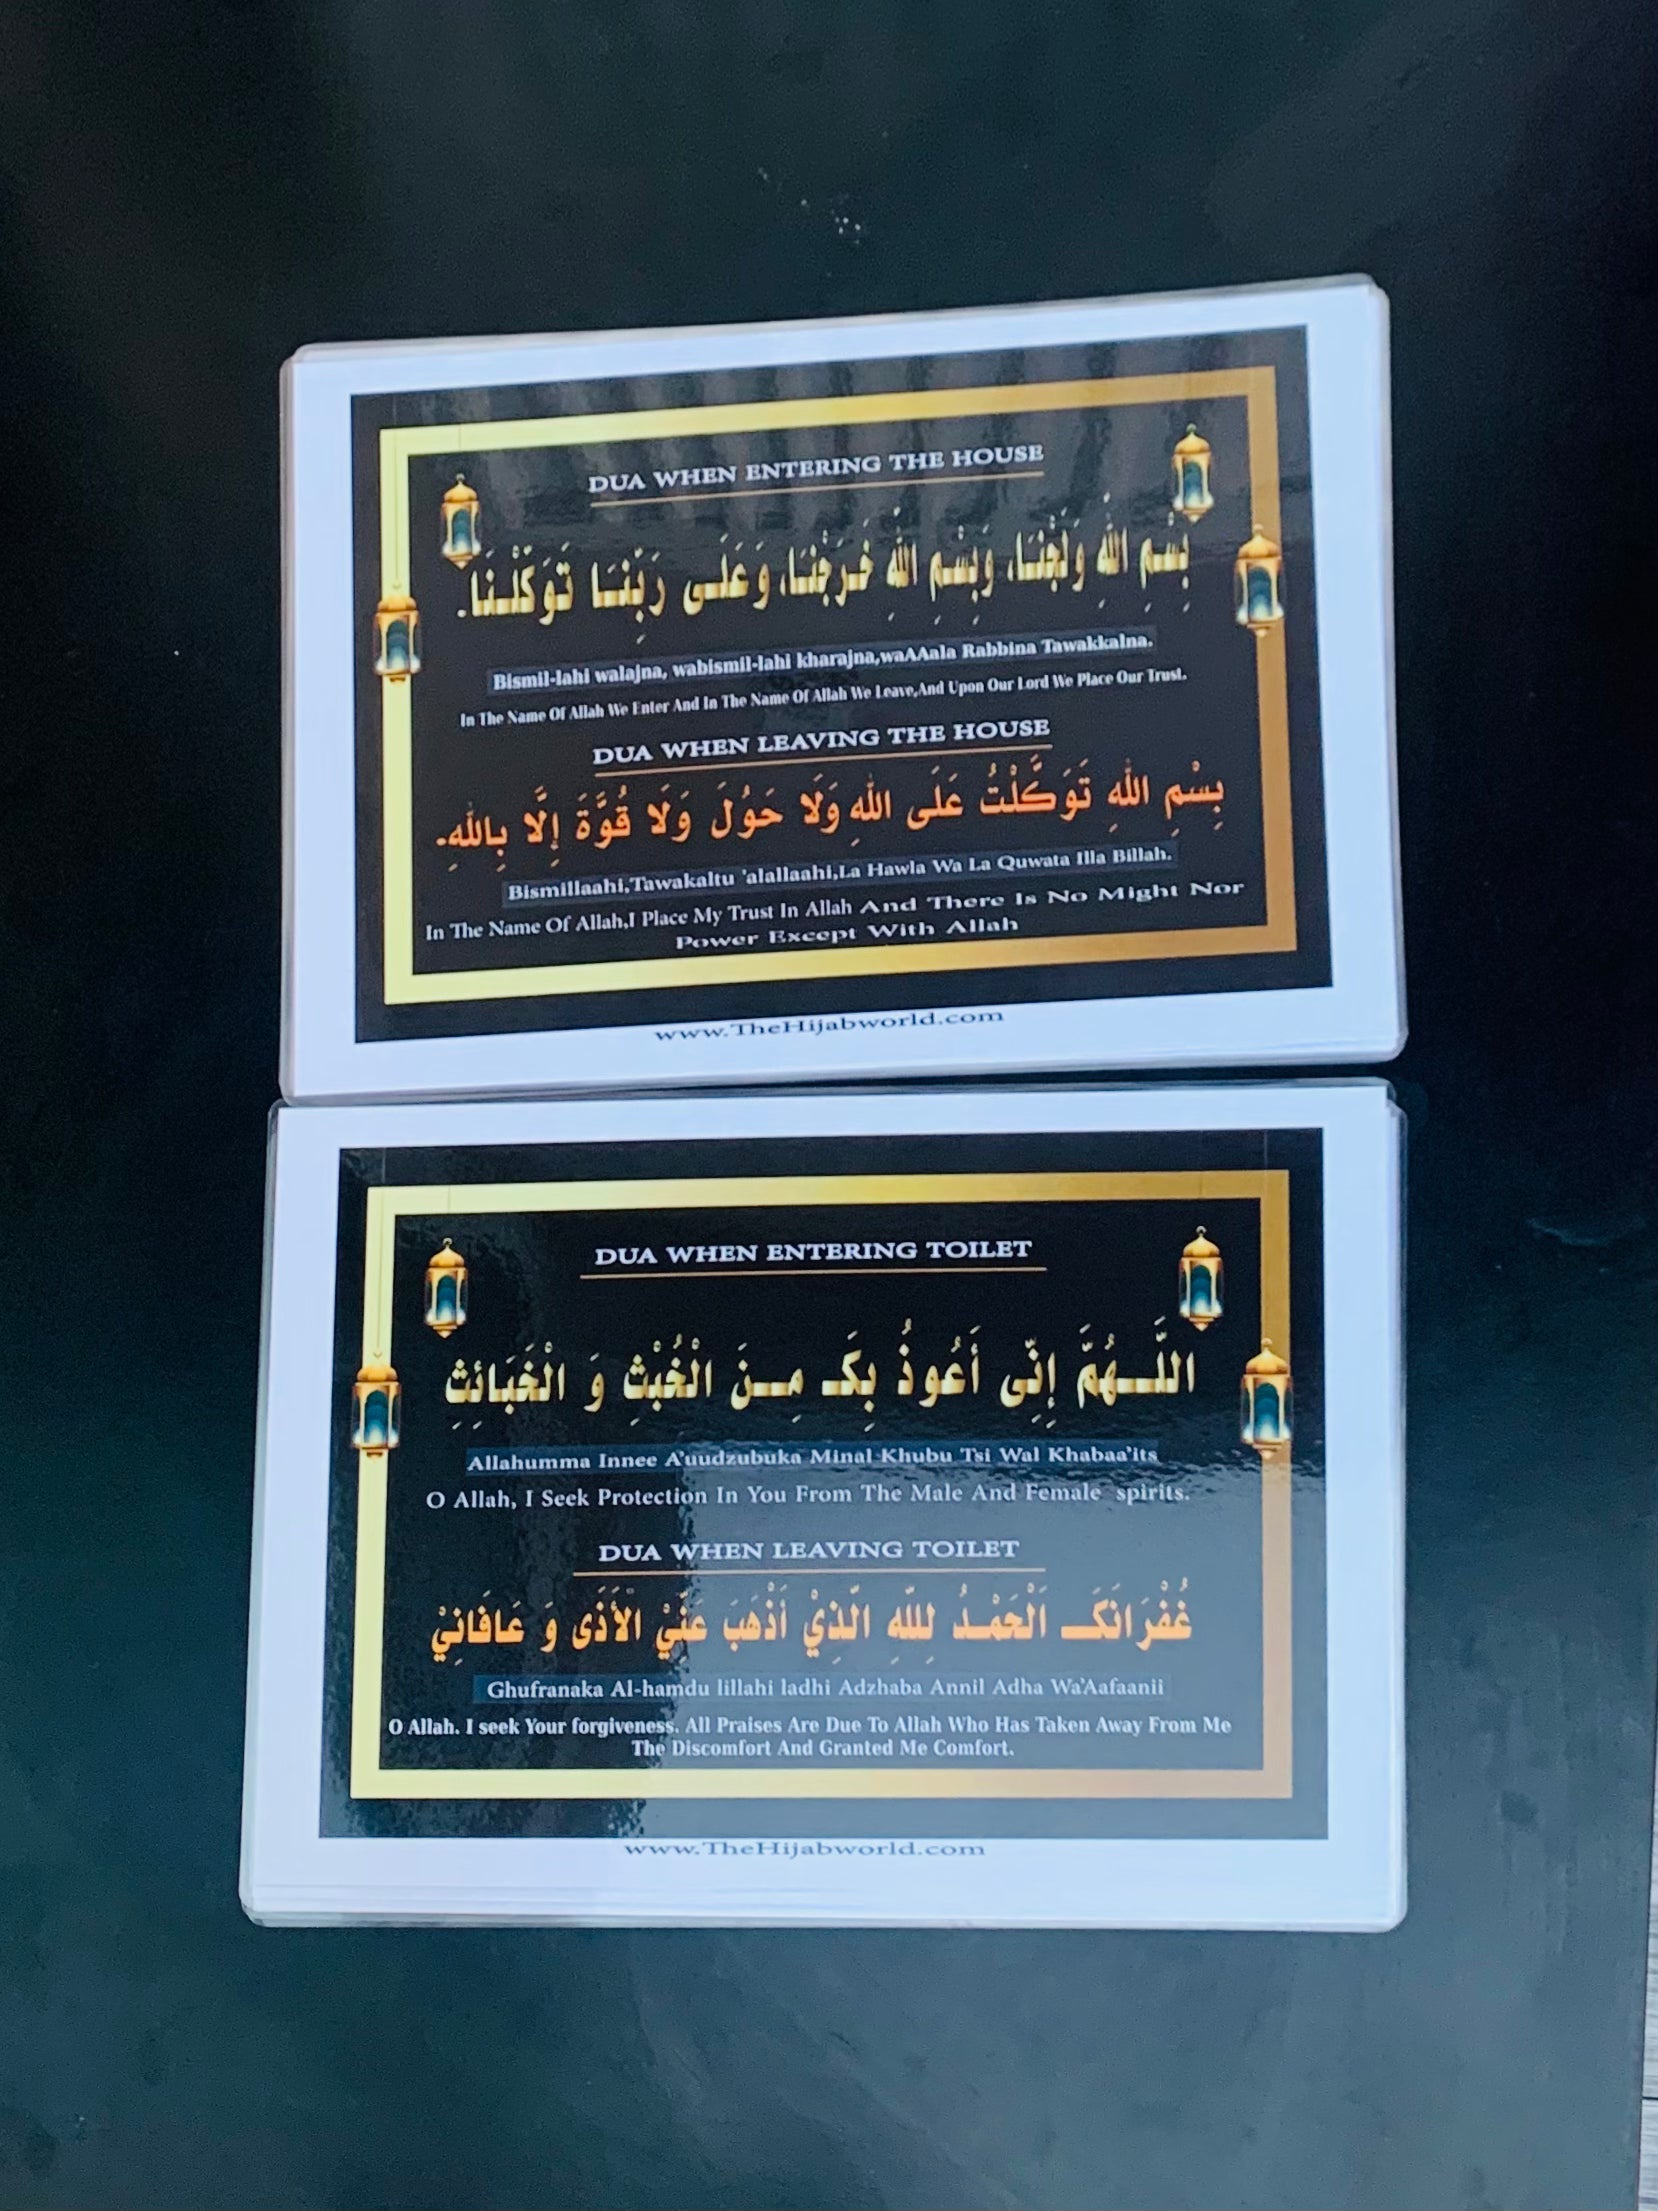 DUA WHEN ENTERING THE HOUSE
بِسْمِ اللهِ وَلَجْنَا، وَبِسْمِ اللهِ خَرَجْنَا، وَعَلَى رَبِّنَا تَوَكَّلْنَا.
Bismil-lahi walajna, wabismil-lahi kharajna,waAAala Rabbina Tawakkalna.
In The Name Of Allah We Enter And In The Name Of Allah We Leave,And Upon Our Lord We Place Our Trust.
DUA WHEN LEAVING THE HOUSE
بِسْمِ اللهِ تَوَكَّلْتُ عَلَى اللهِ وَلَا حَوْلَ وَلَا قُوَّةَ إِلَّا بِاللهِ.
Bismillaahi,Tawakaltu 'alallaahi,La Hawla Wa La Quwata Illa Billah.
In The Name Of Allah,I Place My Trust In Allah And There Is No Might Nor
Power Except With Allah
www.TheHijabworld.com
DUA WHEN ENTERING TOILET
اللَّـهُمَّ إِنِّى أَعُوذُ بِكَـ مِـنَ الْخُبْثِ وَ الْخَبَائِثِ
Allahumma Innee A’uudzubuka Minal Khubu Tsi Wal Khabaa’its
O Allah, I Seek Protection In You From The Male And Female spirits.
DUA WHEN LEAVING TOILET
غُفْرَانَكَـ اَلْحَمْـدُ لِلّٰهِ الَّذِيْ أَذْهَبَ عَنِّيْ الْأَذَى وَ عَافَانِيْ
Ghufranaka Al-hamdu lillahi ladhi Adzhaba Annil Adha Wa’Aafaanii
O Allah. I seek Your forgiveness. All Praises Are Due To Allah Who Has Taken Away From Me
The Discomfort And Granted Me Comfort.
www.TheHijabworld.com